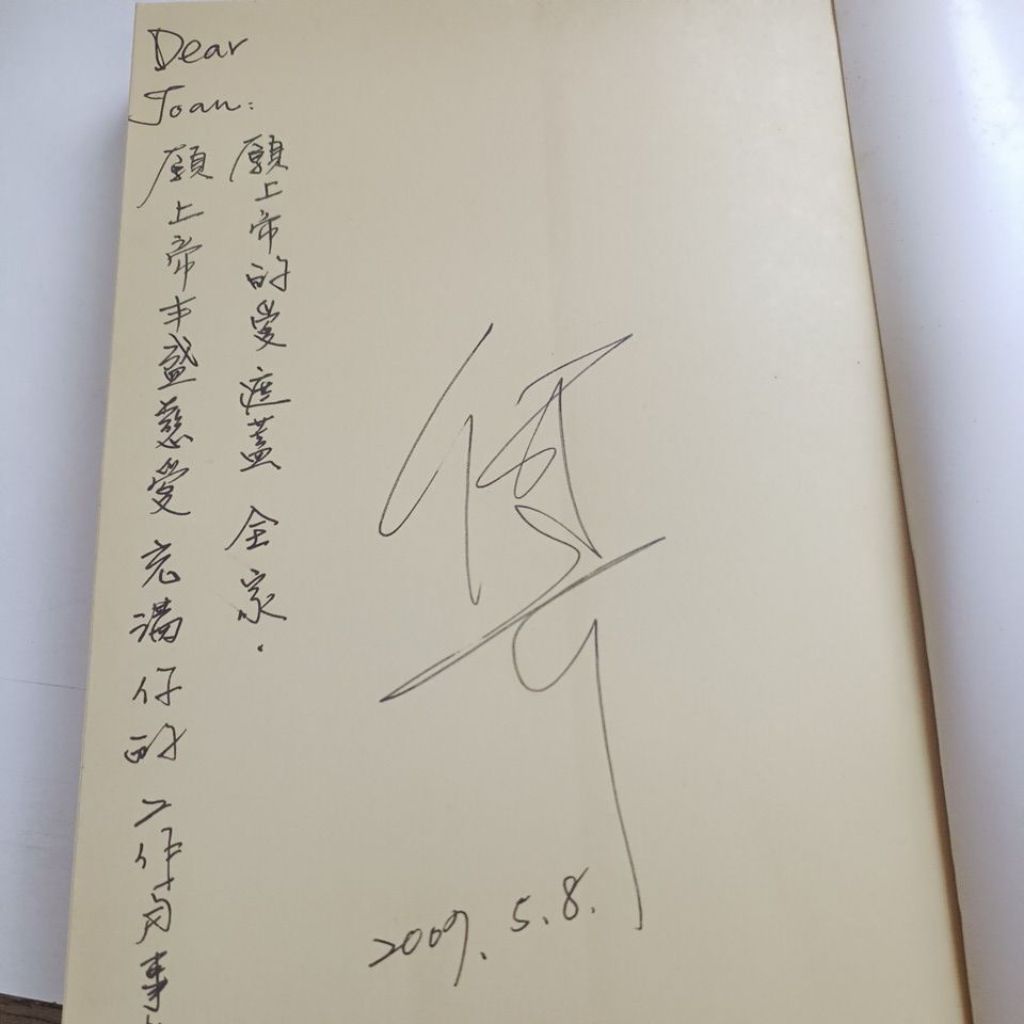 Dear
Joan:
願上帝丰盛慈愛充滿你的工作与事
願上帝的愛遮蓋全家.
2009.5.8.